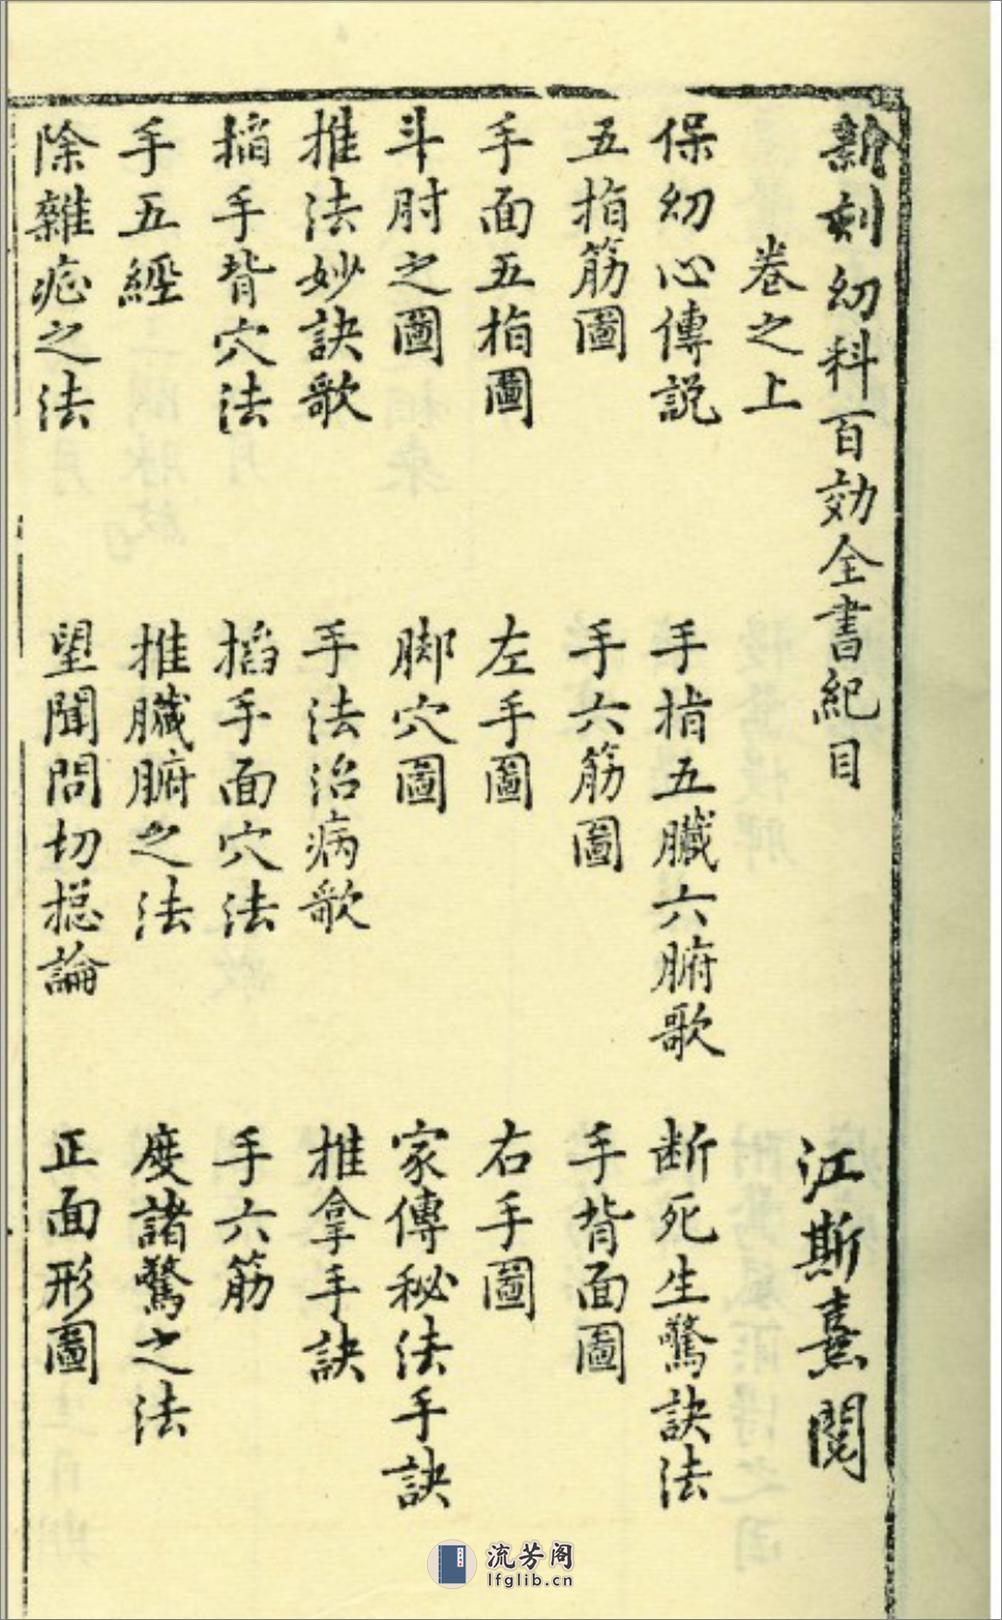 新刻幼科百効全書紀目
江斯熹閱
卷之上
保幼心傳説 手指五臟六腑歌 断死生驚訣法
五指筋圖 手六筋圖 手背面圖
手面五指圖 左手圖 右手圖
斗肘之圖 脚穴圖 家傳秘法手訣
推法妙訣歌 手法治病歌 推拿手訣
搯手背穴法 搯手面穴法 手六筋
手五經 推臟腑之法 度諸驚之法
除雜症之法 望聞問切揔論 正面形圖
流芳阁
lfglib.cn